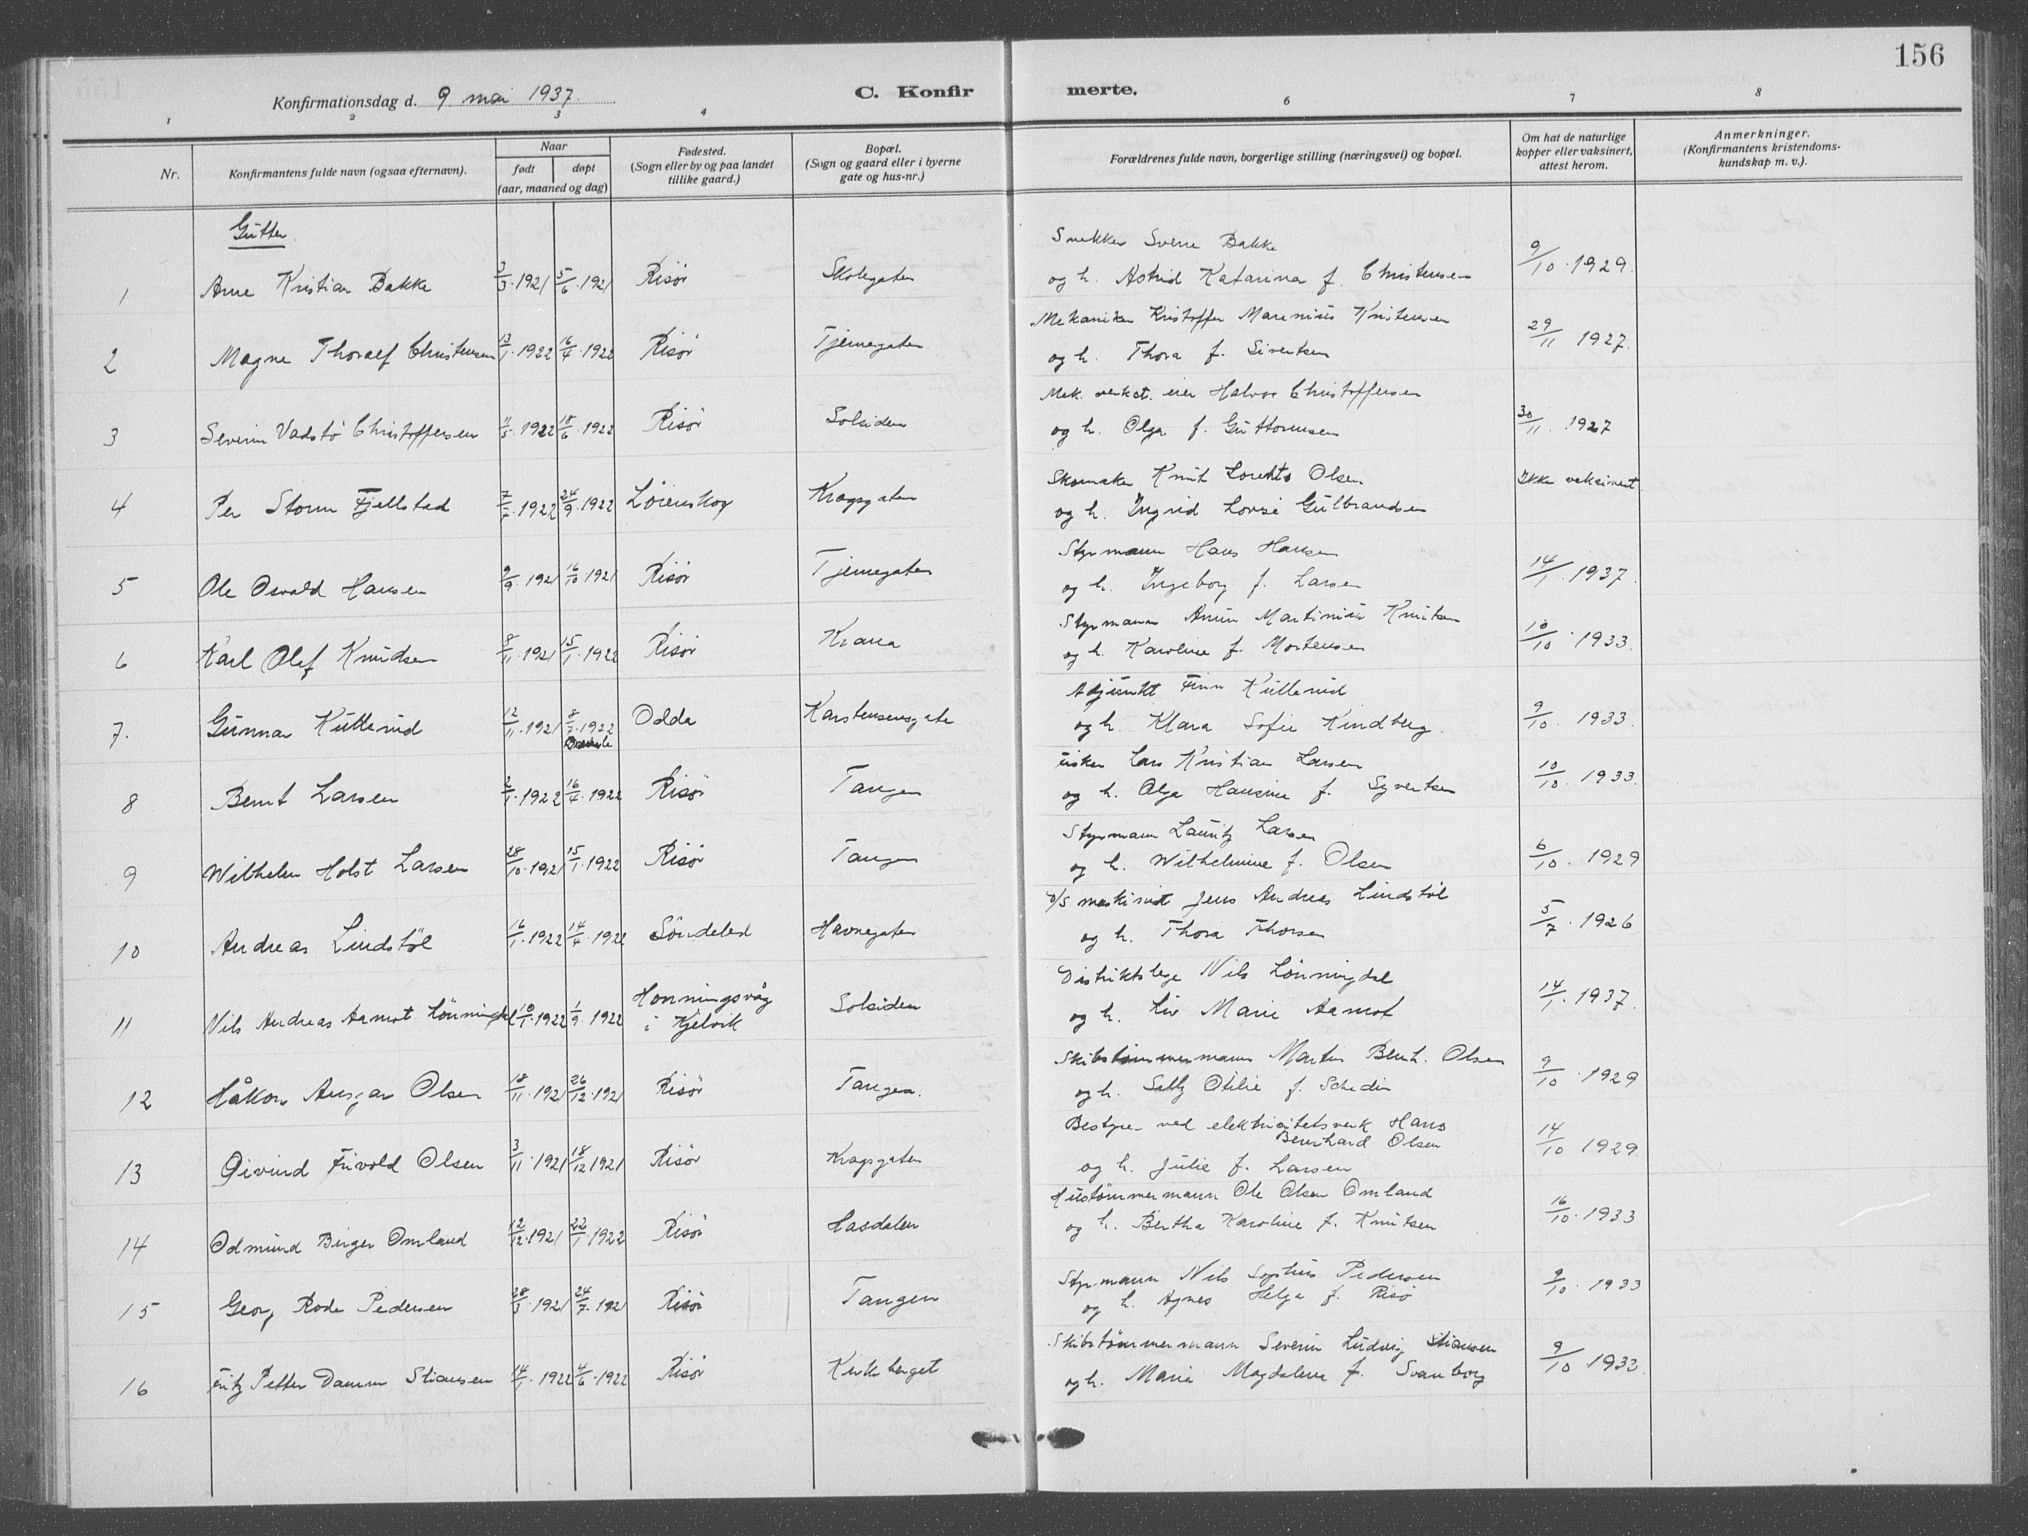 156
Konfirmationsdag d. 9 mai 1937.
C. Konfirmerte.
1 2 3 4 6 7 8
Nr.
Konfirmantens fulde navn (ogsaa efternavn).
Naar
født
døpt
(aar, maaned og dag)
Fødested.
(Sogn eller by og paa landet
tillike gaard.)
Bopæl.
(Sogn og gaard eller i byerne
gate og hus-nr.)
Forældrenes fulde navn, borgerlige stilling (næringsvei) og bopæl.
Om hat de naturlige
kopper eller vaksinert,
attest herom.
Anmerkninger.
(Konfirmantens kristendoms-
kundskap m. v.).
Gutter.
Snekker Sverre Bakke
1 Arne Kristian Bakke 3/3 1921 5/6 1921 Risör Skolegaten og h. Astrid Katarina f. Christensen 9/10 1929.
Mekaniker Kristoffer Marenius Kristensen
2 Magne Thoralf Christensen 13/1 1922 16/4 1922 Risör Tjernegaten og h. Thora f. Sivertsen 29/11 1927.
Mek. verkst. eier Halvor Christoffersen
3 Severin Vadstö Christoffersen 11/5 1922 18/6 1922 Risör Solsiden og h. Olga f. Guttormsen 30/11 1927
Skomaker Knut Olsen Ikke vaksinert
4 Per Storm Fjellstad 7/7 1922 24/9 1922 Löienskog Kragsgaten og h. Ingrid Lovise Gulbrandsen
Styrmann Hans Hansen
5 Ole Osvald Hansen 9/9 1921 16/10 1921 Risör Tjernegaten og h. Ingeborg f. Larsen 14/1 1937.
Styrmann Martinius Knutsen
6 Karl Olaf Knudsen 8/11 1921 15/1 1922 Risör Krana og h. Karoline f. Mortensen 10/10 1933.
Adjunkt Finn Kullerud
7. Gunnar Kullerud 12/11 1921 8/7 1922 Odda Karstensensgate og h. Klara Sofie Kindberg. 9/10 1933.
Fisker Lars Kristian Larsen
8 Bernt Larsen 2/1 1922 16/4 1922 Risör Tangen og h. Olga Hansine f. Syvertsen 10/10 1933.
Styrmann Lauritz Larsen
9 Wilhelm Holst Larsen 28/10 1921 15/1 1922 Risör Tangen og h. Wilhelmine f. Olsen 6/10 1929
D/S maskinist Jens Andreas Lindstöl
10 Andreas Lindstöl 16/1 1922 14/4 1922 Söndeled Havnegaten og h. Thora Thorsen 5/7 1926
Distriktslege Nils Lönningdal
11 Nils Andreas Aamot Lönningdal 10/1 1922 1/9 1922 Honningsvåg i Kjelvik Solsiden og h. Liv Marie Aamot 14/1 1937.
Skibstömmermann Martin Bernh. Olsen
12 Håkon Ansgar Olsen 18/11 1921 26/12 1921 Risör Tangen. og h. Sally Otilie f. Schedin 9/10 1929
Bestyrer ved elektricitetsverk Hans
Bernhard Olsen
13 Öivind Frivold Olsen 3/11 1921 18/12 1921 Risör Kragsgaten og h. Julie f. Larsen 14/10 1929.
Hustömmermann Ole Olsen Omland
14 Odmund Birger Omland 12/12 1921 22/1 1922 Risör Hasdalen og h. Bertha Karoline f. Knutsen 16/10 1933
Styrmann Nils Sophus Pedersen
15 Georg Rode Pedersen 28/3 1921 24/7 1921 Risör Tangen og h. Agnes Helga f. Risö 9/10 1933
Skibstömmermann Severin Ludvig Stiansen
16 Fritz Petter Damm Stiansen 14/1 1922 4/6 1922 Risör Kirkeberget og h. Maria Magdalena f. Svanborg 9/10 1933.